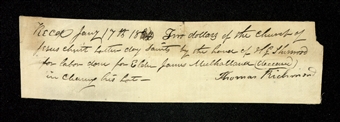 Recd Jany 17th 18 Two dollars of the church of
Jesus christ Latter day Saints by the hands of H G Sherwood
for labor done for Elder James Mulholland (deceased)
in his lot —
Thomas Richmond